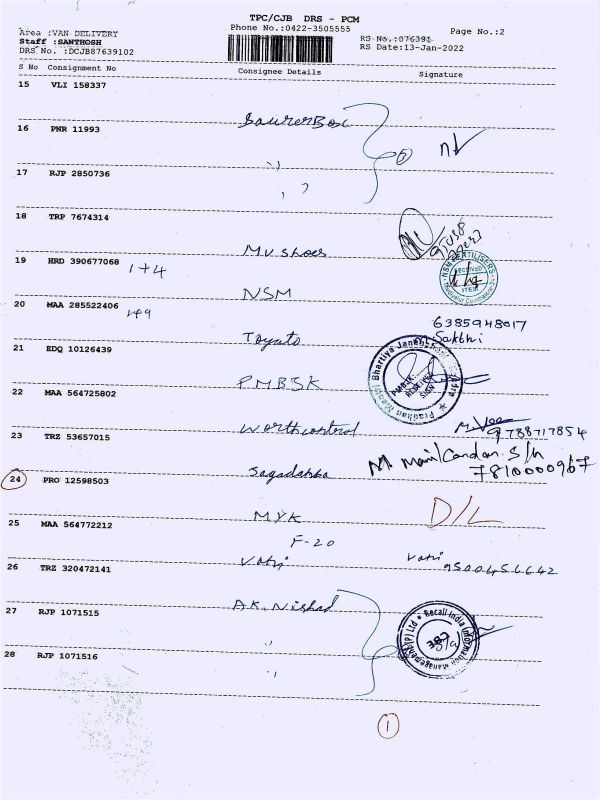 TPC/CJB DRS - PCM
Area :VAN DELIVERY
Phone No.:0422-3505555
Page No.:2
Staff :SANTHOSH
RS No.:076391
DRS No. :DCJB87639102
RS Date:13-Jan-2022
S No Consignment No Consignee Details Signature
15 VLI 158337
16 PNR 11993
17 RJP 2850736
18 TRP 7674314
MV Shoes
19 HRD 390677068 1+4
NSM
20 MAA 285522406 1+9
6385948017
Sakthi
21 EDQ 10126439
PMBSK
22 MAA 564725802
9788717854
23 TRZ 53657015
7810000967
24 PRO 12598503
MYK D/L
25 MAA 564772212
F-20
26 TRZ 320472141
Vatri Vatri
9500456642
27 RJP 1071515
A.K. Nishad
Recall India Information Management (P) Ltd
28 RJP 1071516
1